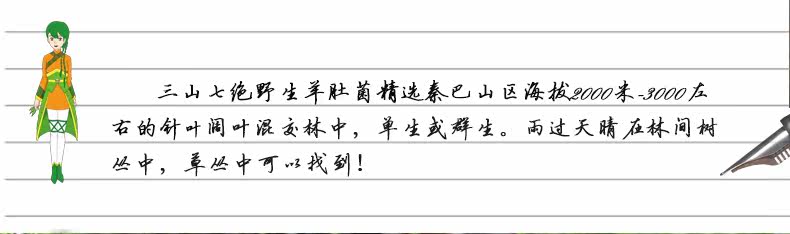 三山七绝野生羊肚菌精选秦巴山区海拔2000米-3000左
右的针叶阔叶混交林中，单生或群生。雨过天晴在林间树
丛中，草丛中可以找到！